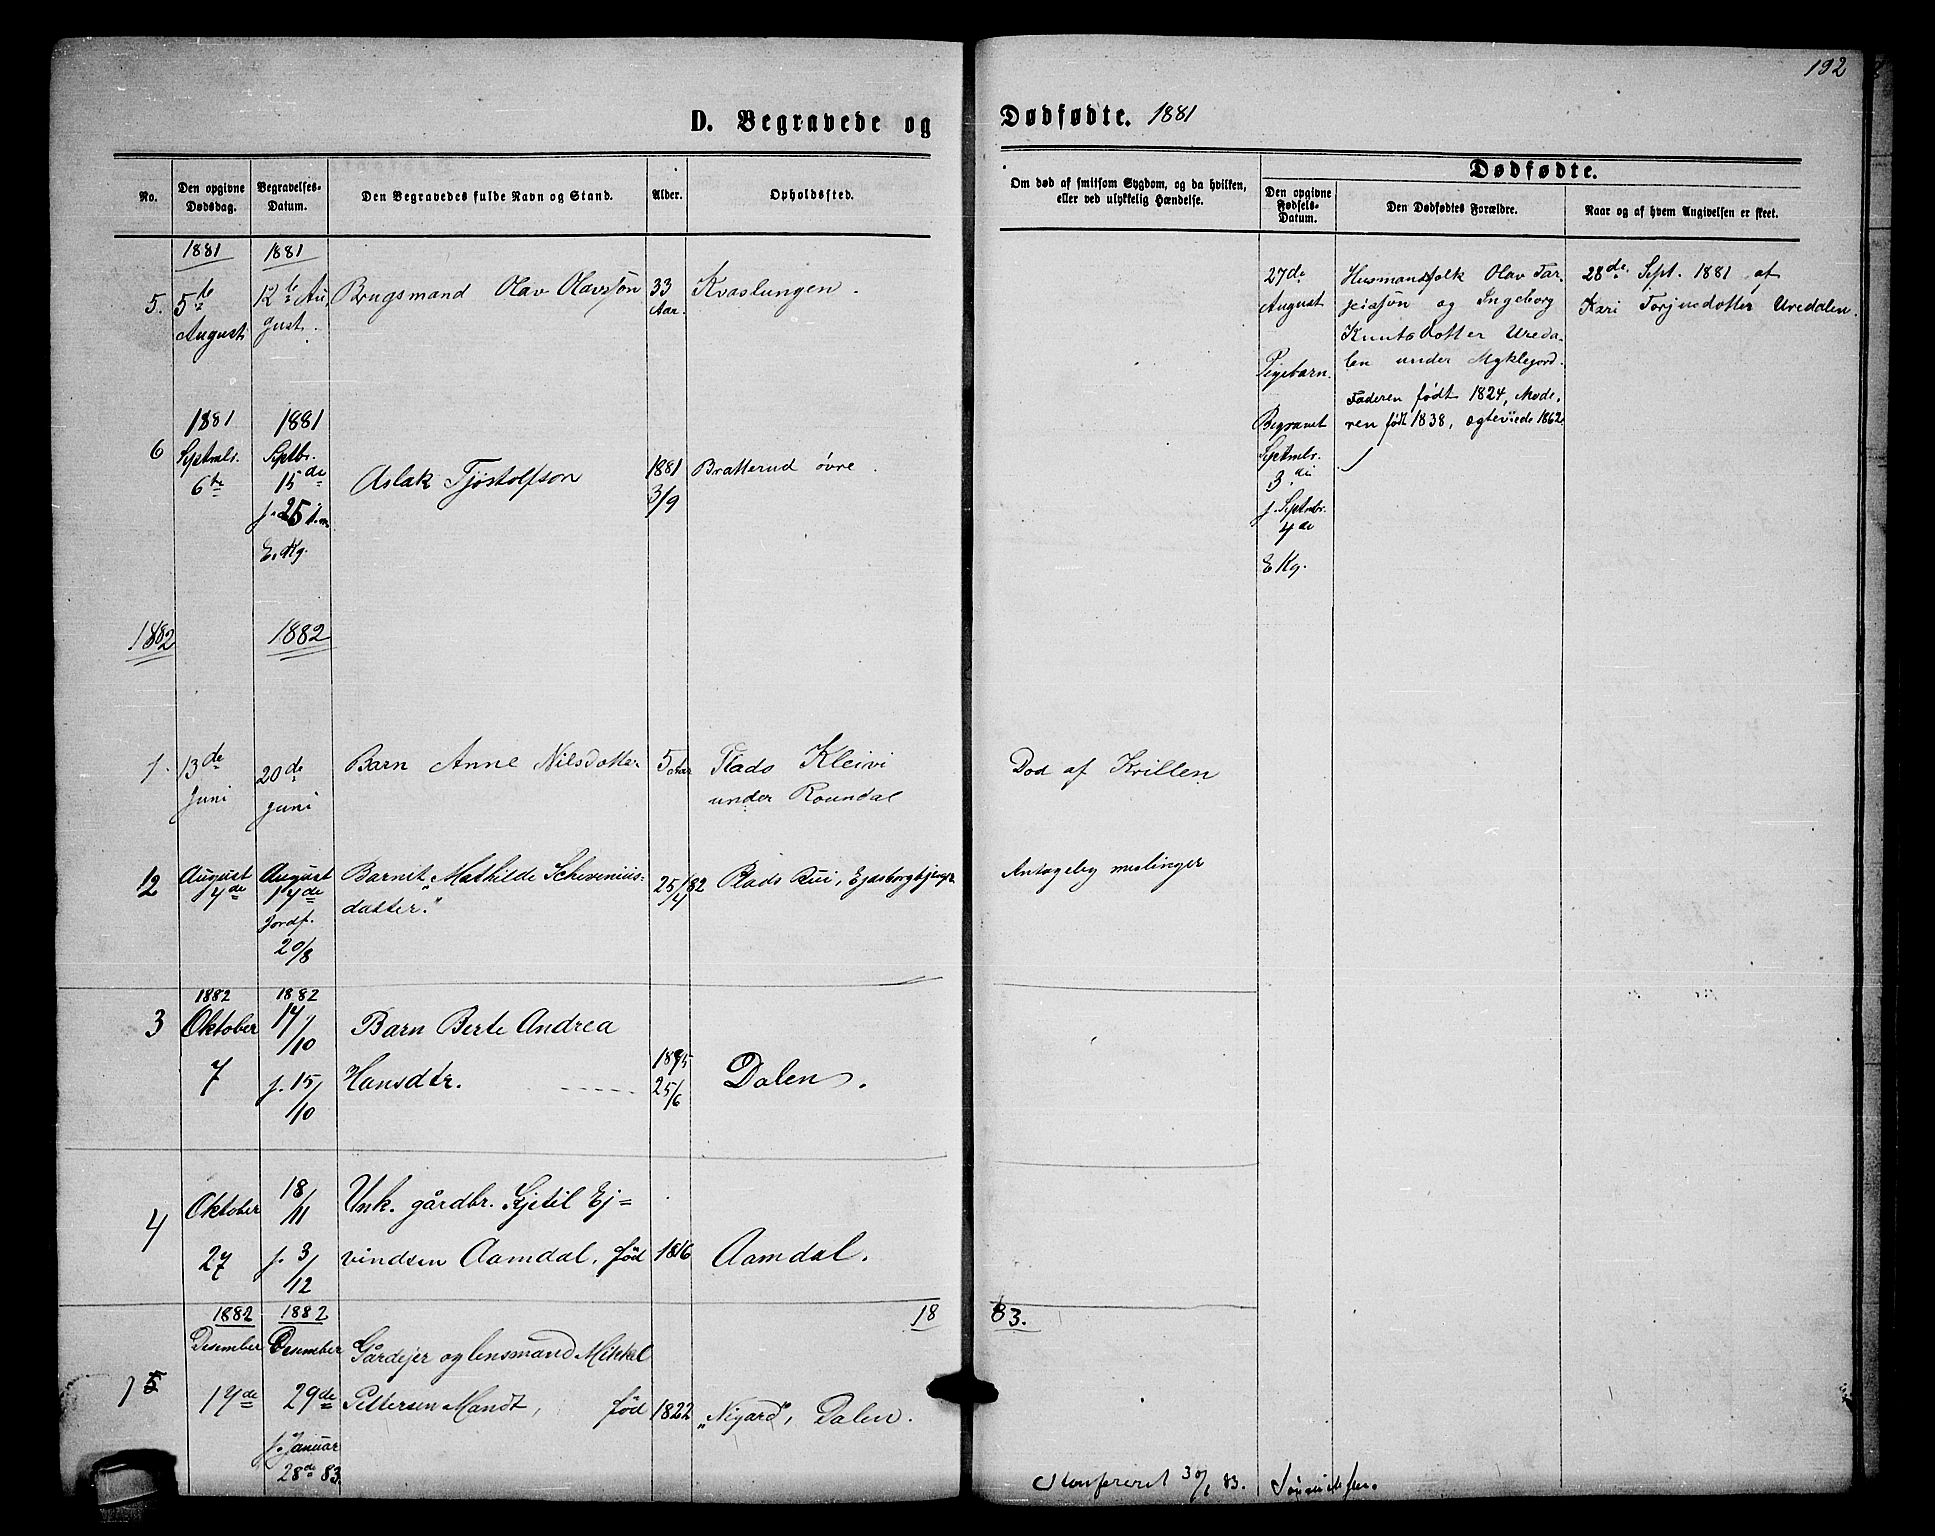 192
D. Begravede og Dødfødte. 1881
No.
Den opgivne Dødsdag.
Begravelses-Datum.
Den Begravedes fulde Navn og Stand.
Alder.
Opholdssted.
Om død af smitsom Sygdom, og da hvilken, eller ved ulykkelig Hændelse.
Dødfødte.
Den opgivne Fødsels-Datum.
Den Dødfødtes Forældre.
Naar og af hvem Angivelsen er skeet.
1881 1881
5. 5te August
12te August.
Brugsmand Olav Olavssøn
33 Aar.
Kvaslungen.
27de August
Pigebarn.
Begravet
Septmbr.
3di
j. Septmbr.
4de
E Kg.
Husmandsfolk Olav Tar-
jeissøn og Ingeborg
Knuts Dotter Ureda-
len under Myklejord.
Faderen født 1824, Mode,
ren født 1838, ægteviede 1862
28de Sept. 1881 af
Kari Torjusdotter Uredalen.
6
1881
Septmbr.
6te
1881
Septbr.
15de
j. 25
E. Kg.
Aslak Tjøstolfson
1881
3/9
Bratterud øvre.
1882 1882
1. 13de Juni
20de Juni
Barn Anne Nilsdotter
5 Aar
Plads Kleivi
under Roundal
Dod af Krillen
2
August
14de
August
14de
Jordf.
20/8
Barnet „Mathilde Schevenius-
datter."
25/4 82
Plads Rui,
Antagelig meslinger
1882 1882
3 Oktober
7
14/10
j. 15/10
Barn Berte Andrea
Hansdtr.
25/6
Dalen.
4
Oktober
27
18/11
j. 3/12
Unk. gårdbr. Kjetil Ej=
vindsen Aamdal, fød
1816
Aamdal.
1882 1882
1883.
5
Desember
14de
Desember
29de
j. Januar
28de 83.
Gårdejer og lensmand Mikkel
Pettersen Mandt, fød
1822
„Nigard", Dalen.
Konfereret 30/1 83.